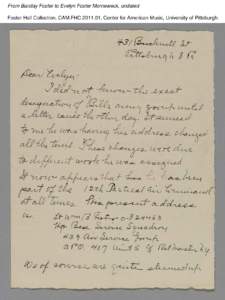 From Barclay Foster to Evelyn Foster Morneweck, undated
Foster Hall Collection, CAM.FHC.2011.01, Center for American Music, University of Pittsburgh.
431 Bucknell St
Pittsburgh 8 Pa
Dear Evelyn:
I did not know the exact
designation of Bill's army group until
a letter came the other day. It seemed
to me he was having his address changed
all the time. These changes were due
to different work he was assigned
It now appears that has been
part of the 12th Tactical Air Command
at all times. His present address
is
Hqs. Base Service Squadron
Air Service Group
A.P.O.
We of course are quite